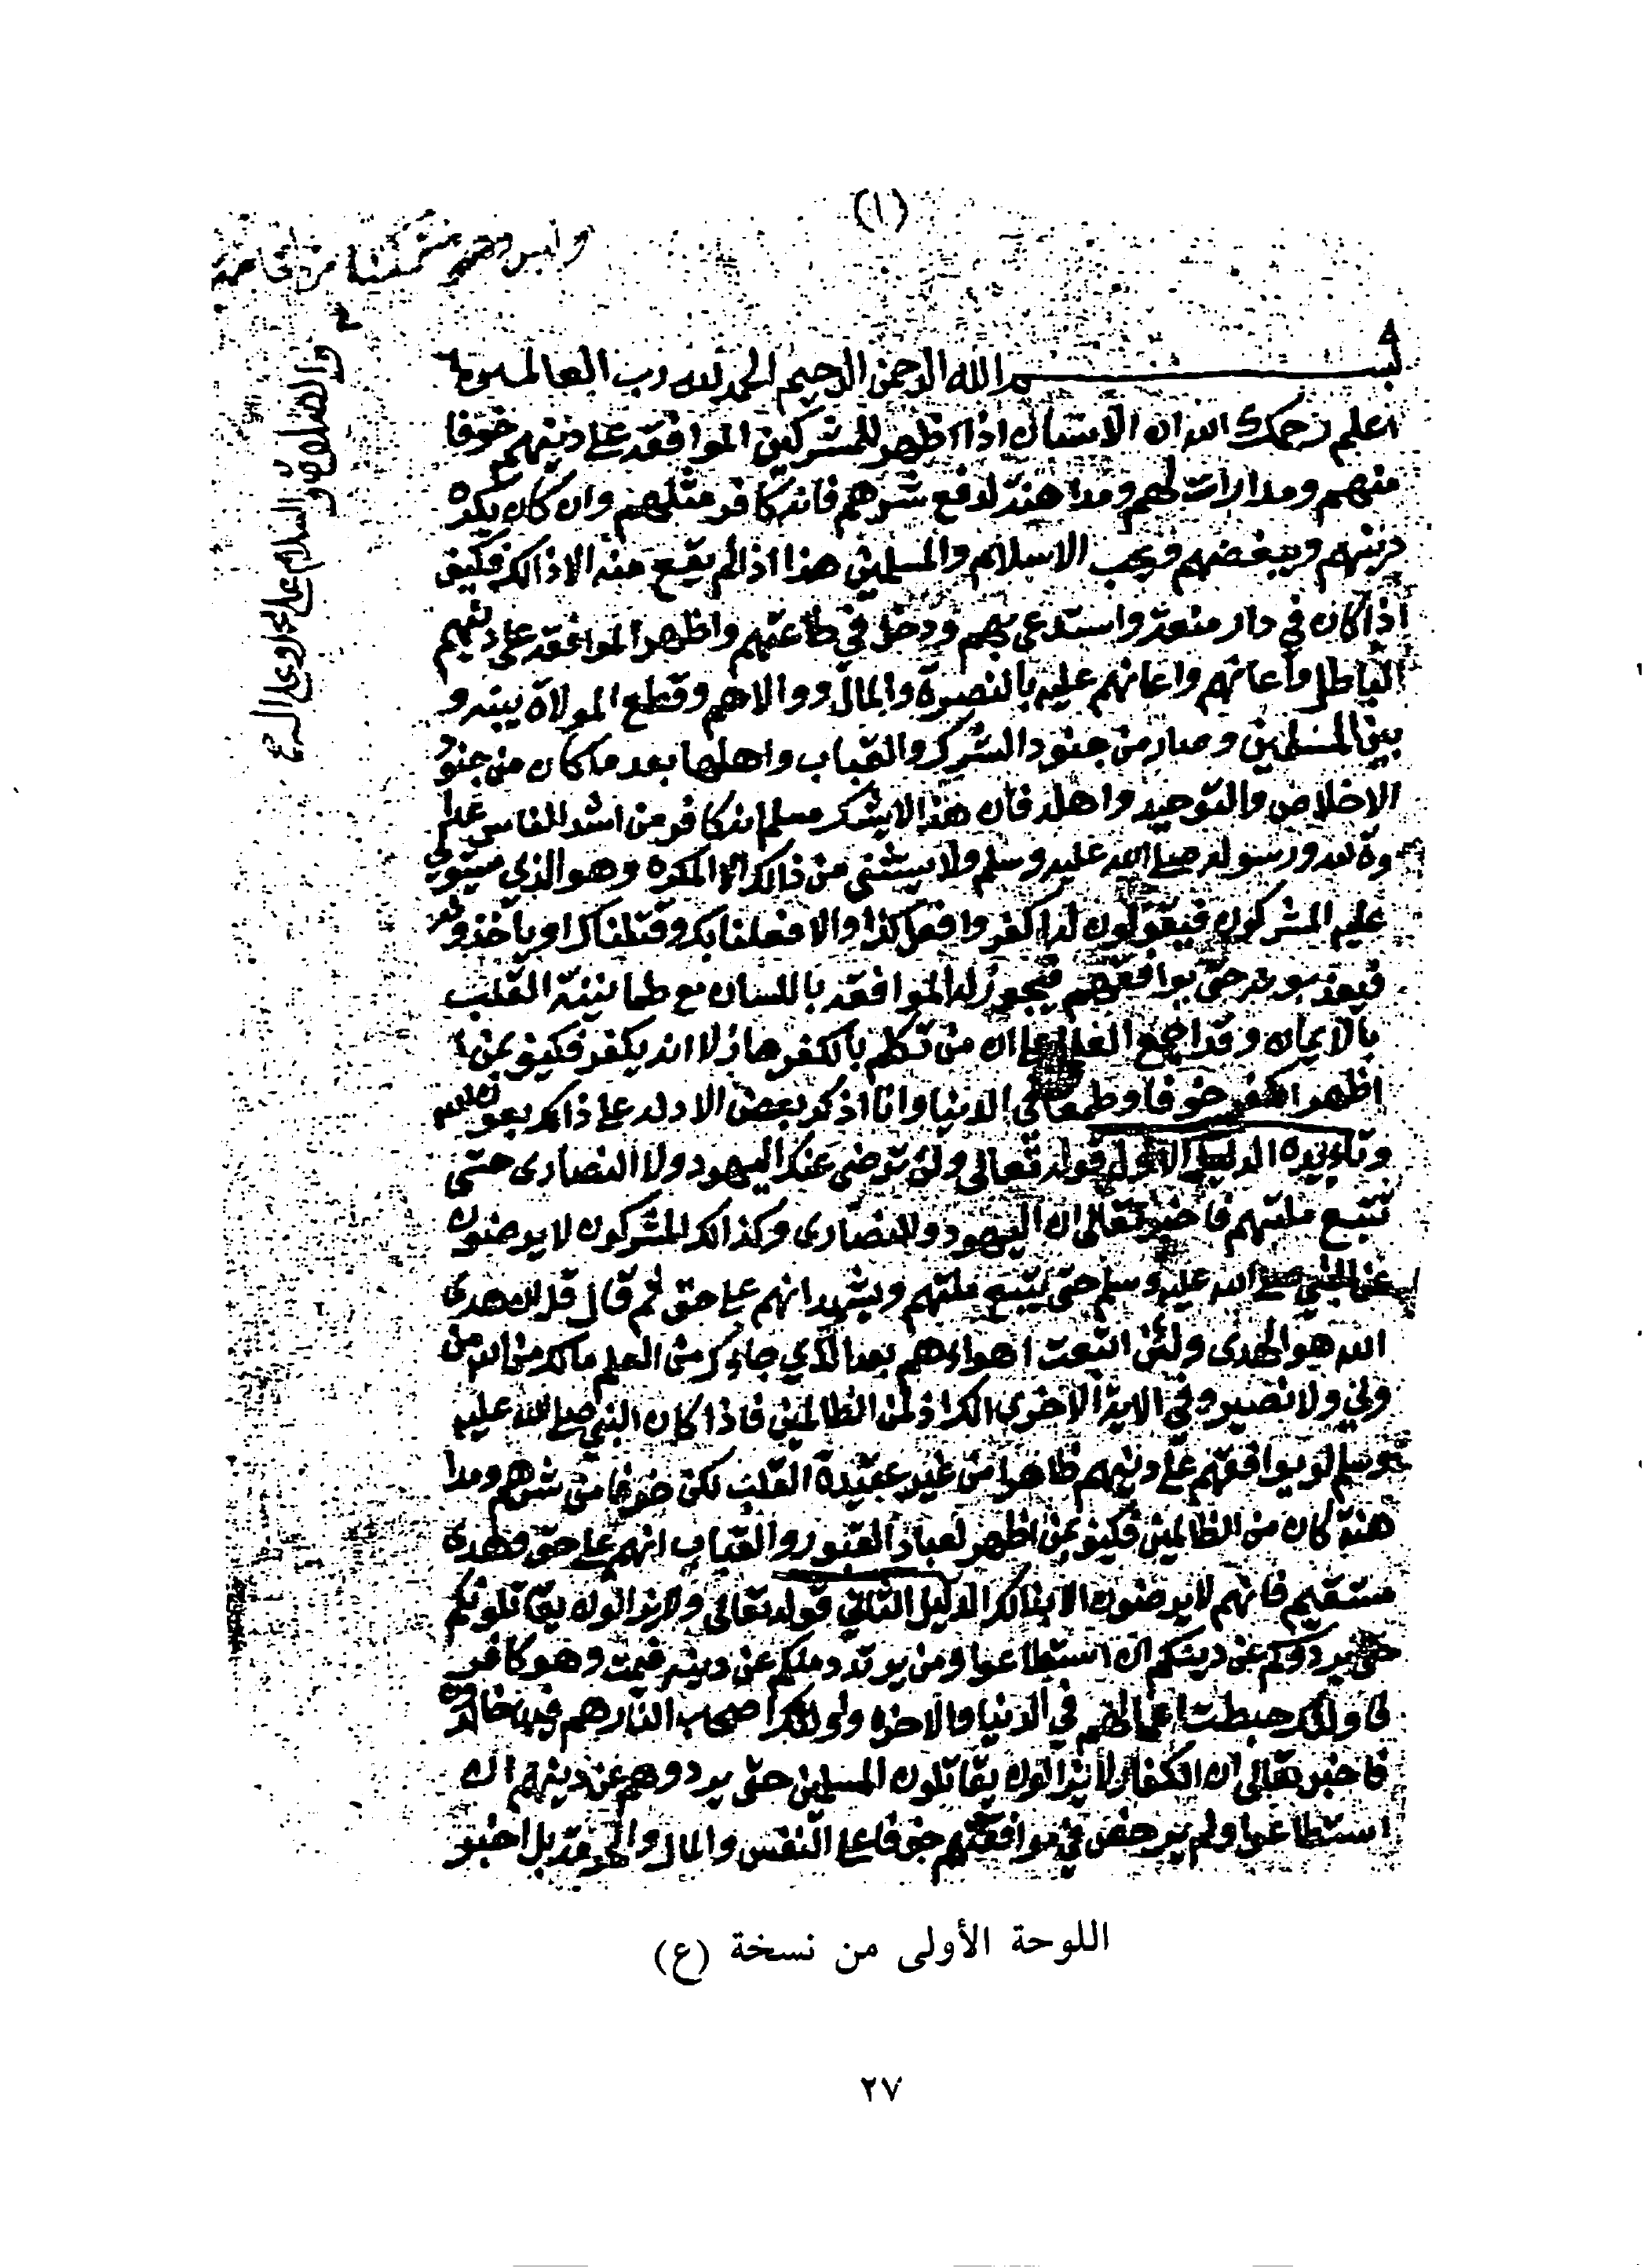 (١)
بسم الله الرحمن الرحيم الحمد لله رب العالمين
اعلم رحمك الله ان الانسان اذا اظهر للمشركين الموافقة على دينهم خوفا
منهم ومدارات لهم ومداهنة لدفع شرهم فانه كافر مثلهم وان كان يكره
دينهم ويبغضهم ويحب الاسلام والمسلمين هذا اذا لم يقع منه الا ذالك فكيف
اذا كان في دار منعة واستدعى بهم ودخل في طاعتهم واظهر الموافقة على دينهم
الباطل واعانهم عليه بالنصرة والمال ووالاهم وقطع الموالاة بينه و
بين المسلمين وصار من جنود الشرك والقباب واهلها بعد ما كان من جنود
الاخلاص والتوحيد واهله فان هذا لا يشك مسلم انه كافر من اشد الناس عدا
وة لله ورسوله صلى الله عليه وسلم ولا يستثنى من ذالك الا المكره وهو الذي يستولي
عليه المشركون فيقولون له اكفر وافعل كذا والا فعلنا بك وقتلناك او ياخذونه
فيعذبونه حتى يوافقهم فيجوز له الموافقة باللسان مع طمانينة القلب
بالايمان وقد اجمع العلما على ان من تكلم بالكفر هازلا انه يكفر فكيف بمن
اظهر الكفر خوفا وطمعا في الدنيا وانا اذكر بعض الادلة على ذالك بعون الله
وتاييده الدليل الاول قوله تعالى ولن ترضى عنك اليهود ولا النصارى حتى
تتبع ملتهم فاخبر تعالى ان اليهود والنصارى وكذالك المشركون لا يرضون
عن النبي صلى الله عليه وسلم حتى يتبع ملتهم ويشهد انهم على حق ثم قال قل ان هدى
الله هو الهدى ولئن اتبعت اهواءهم بعد الذي جاءك من العلم مالك من الله من
ولي ولا نصير وفي الاية الاخرى انك اذا لمن الظالمين فاذا كان النبي صلى الله عليه
وسلم لو يوافقهم على دينهم ظاهرا من غير عقيدة القلب لكن خوفا من شرهم ومدا
هنة كان من الظالمين فكيف بمن اظهر لعباد القبور والقباب انهم على حق وهدى
مستقيم فانهم لا يرضون الا بذالك الدليل الثاني قوله تعالى ولا يزالون يقاتلونكم
حتى يردوكم عن دينكم ان استطاعوا ومن يرتدد منكم عن دينه فيمت وهو كافر
فاولئك حبطت اعمالهم في الدنيا والاخرة واولئك اصحاب النار هم فيها خالدون
فاخبر تعالى ان الكفار لا يزالون يقاتلون المسلمين حتى يردوهم عن دينهم ان
استطاعوا ولم يرخص في موافقتهم خوفا على النفس والمال والحرمة بل اخبر
والصلوة والسلام على محمد وعلى اله
اللوحة الأولى من نسخة (ع)
٢٧